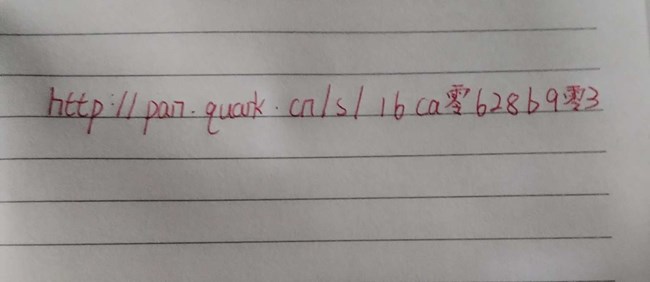 http://pan.quark.cn/s/16ca零628b9零3